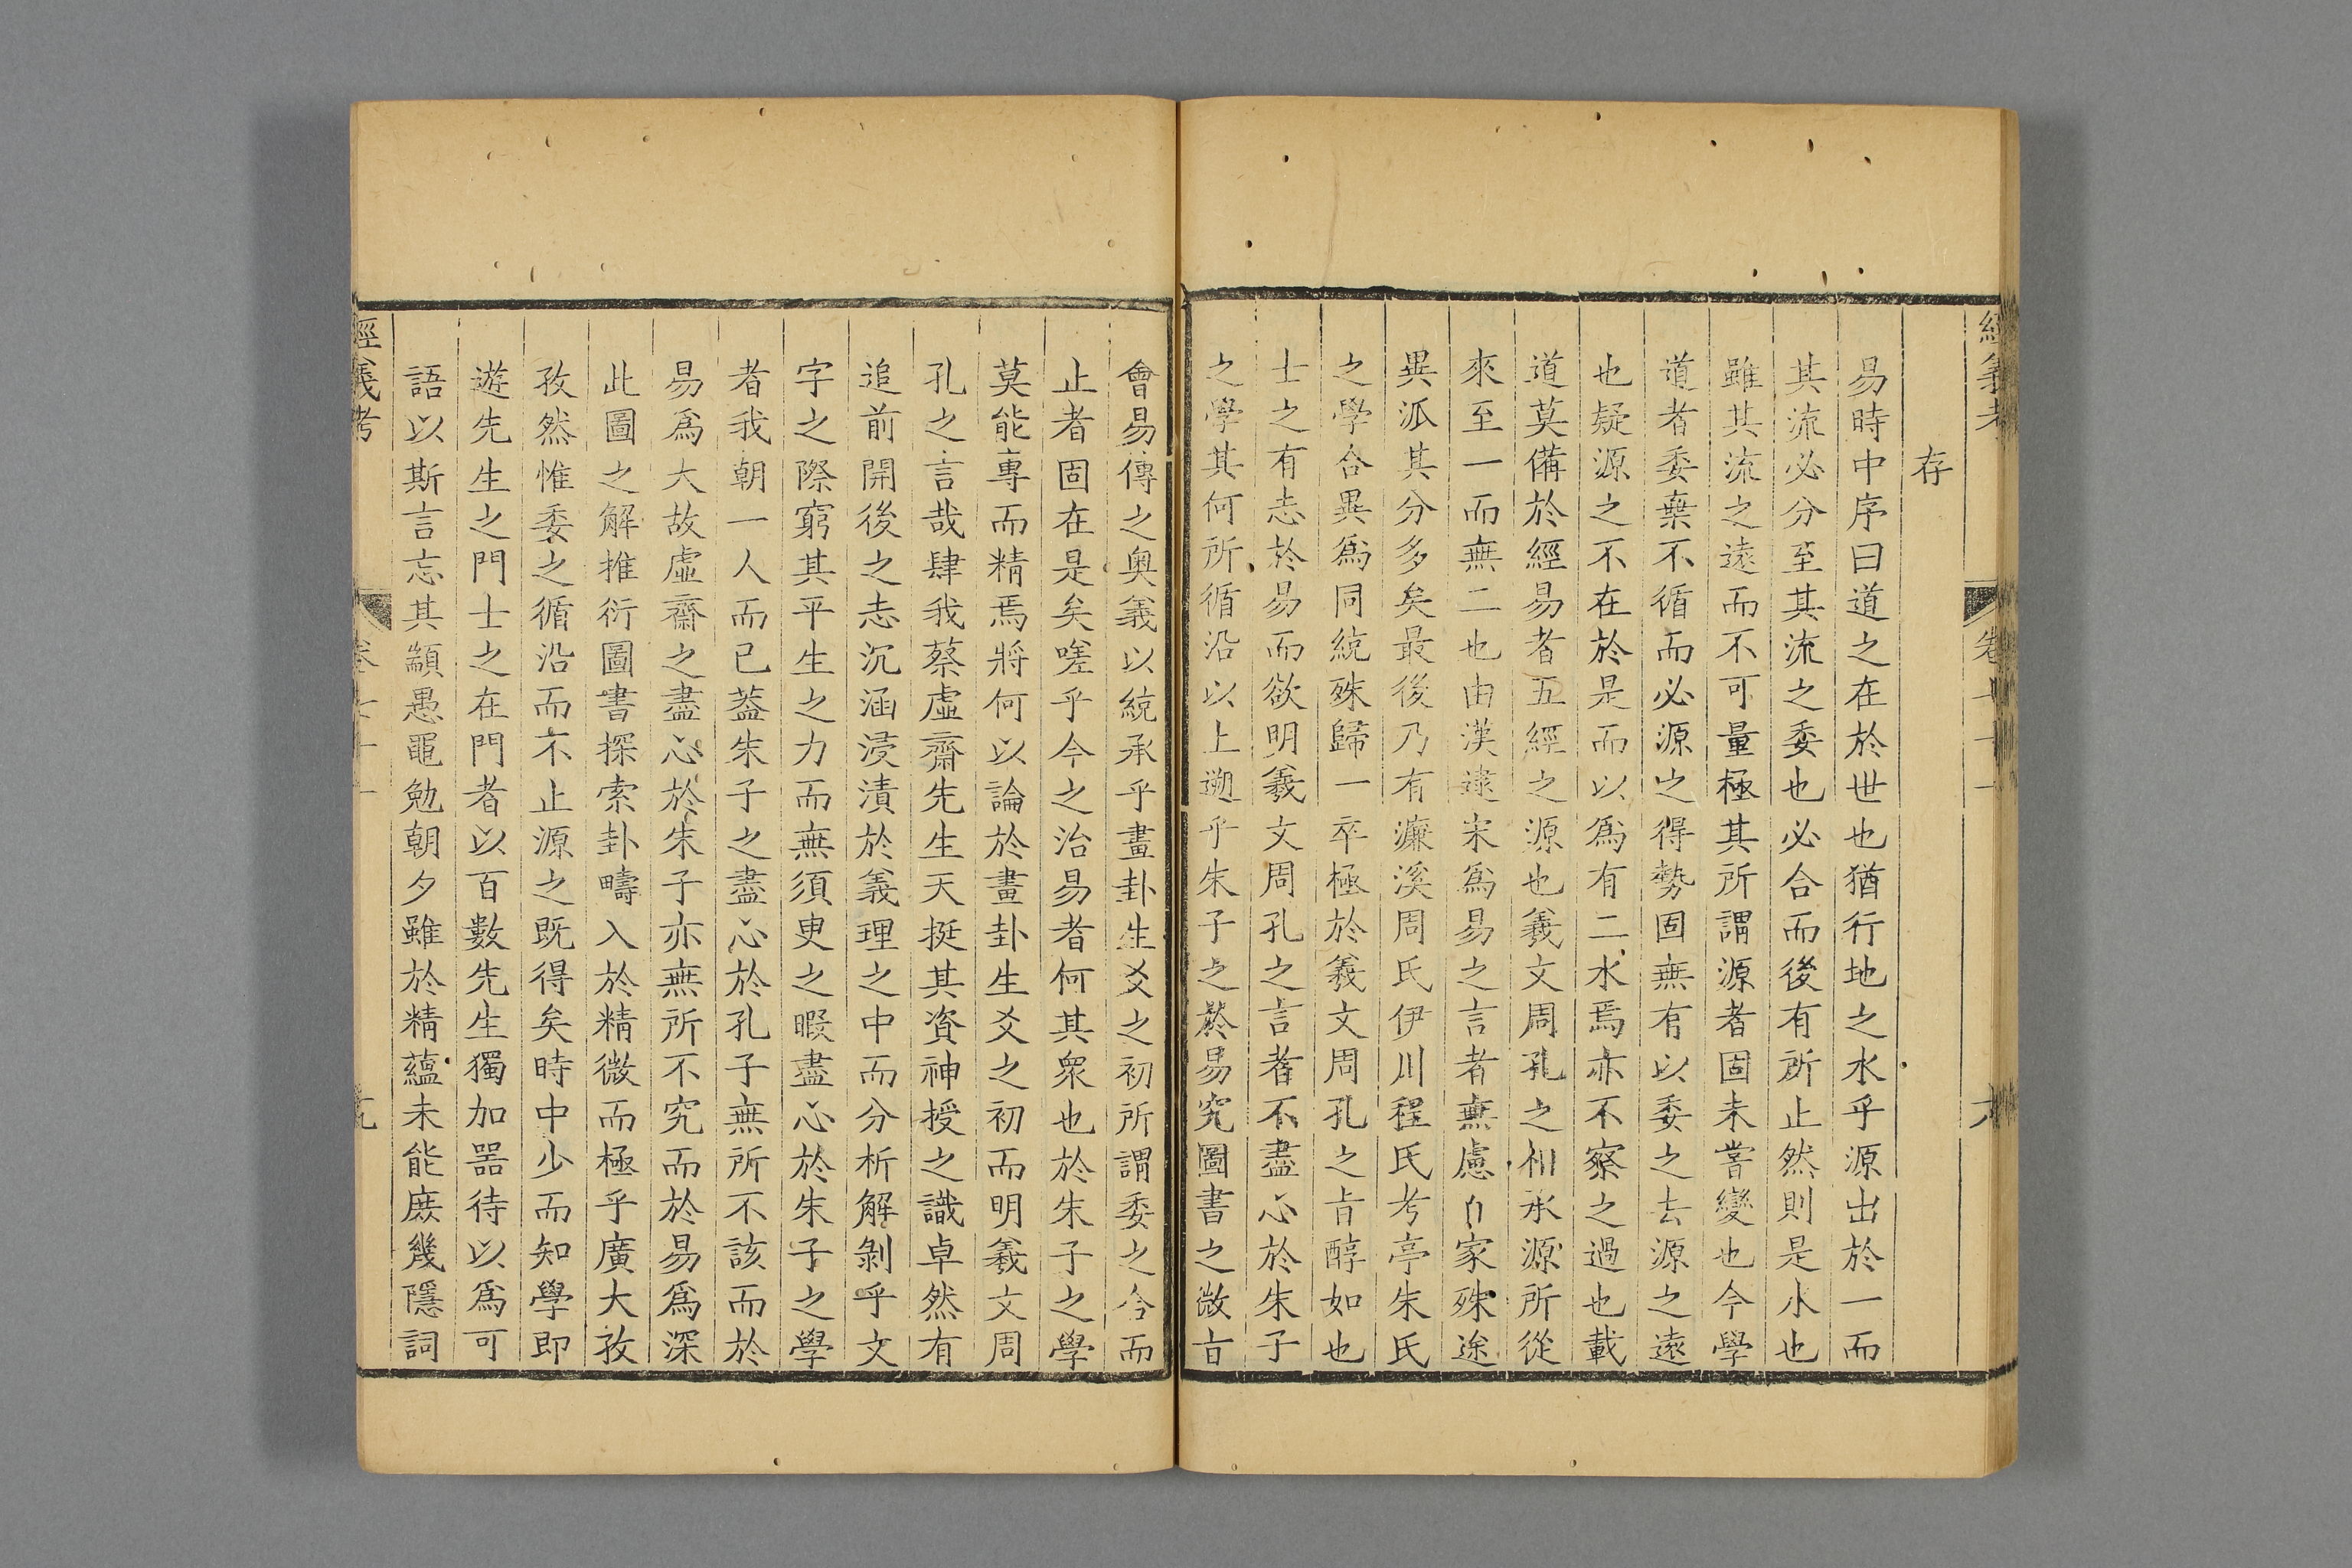 存
易時中序曰道之在於世也猶行地之水乎源出於一而
其流必分至其流之委也必合而後有所止然則是水也
雖其流之遠而不可量極其所謂源者固未嘗變也今學
道者委棄不循而必源之得勢固無有以委之去源之遠
也疑源之不在於是而以爲有二水焉亦不察之過也載
道莫備於經易者五經之源也羲文周孔之相承源所從
來至一而無二也由漢逮宋爲易之言者無慮家殊途
異派其分多矣最後乃有濂溪周氏伊川程氏考亭朱氏
之學合異爲同統殊歸一卒極於羲文周孔之旨醇如也
士之有志於易而欲明羲文周孔之言者不盡心於朱子
之學其何所循沿以上遡乎朱子之於易究圖書之微旨
會易傳之奧義以統承乎畫卦生爻之初所謂委之合而
止者固在是矣嗟乎今之治易者何其衆也於朱子之學
莫能專而精焉將何以論於畫卦生爻之初而明羲文周
孔之言哉肆我蔡虛齋先生天挺其資神授之識卓然有
追前開後之志沉涵浸漬於義理之中而分析解剝乎文
字之際窮其平生之力而無須臾之暇盡心於朱子之學
者我朝一人而已葢朱子之盡心於孔子無所不該而於
易爲大故虛齋之盡心於朱子亦無所不究而於易爲深
此圖之解推衍圖書探索卦疇入於精微而極乎廣大孜
孜然惟委之循沿而不止源之既得矣時中少而知學即
遊先生之門士之在門者以百數先生獨加噐待以爲可
語以斯言忘其顓愚黽勉朝夕雖於精蘊未能庶幾隱詞
經義考